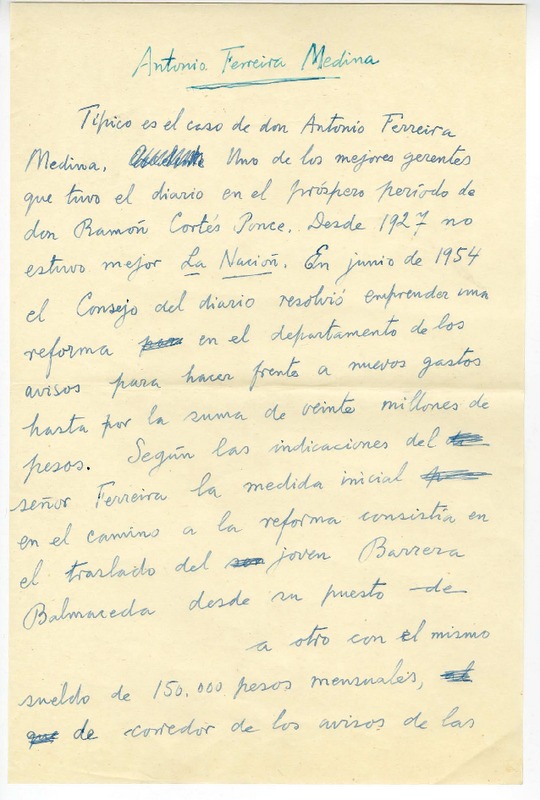 Antonio Ferreira Medina
Típico es el caso de don Antonio Ferreira
Medina. Uno de los mejores gerentes
que tuvo el diario en el próspero período de
don Ramón Cortés Ponce. Desde 1927 no
estuvo mejor La Nación. En junio de 1954
el Consejo del diario resolvió emprender una
reforma en el departamento de los
avisos para hacer frente a nuevos gastos
hasta por la suma de veinte millones de
pesos. Según las indicaciones del
señor Ferreira la medida inicial
en el camino a la reforma consistía en
el traslado del joven Barrera
Balmaceda desde su puesto de
a otro con el mismo
sueldo de 150.000 pesos mensuales,
de corredor de los avisos de las